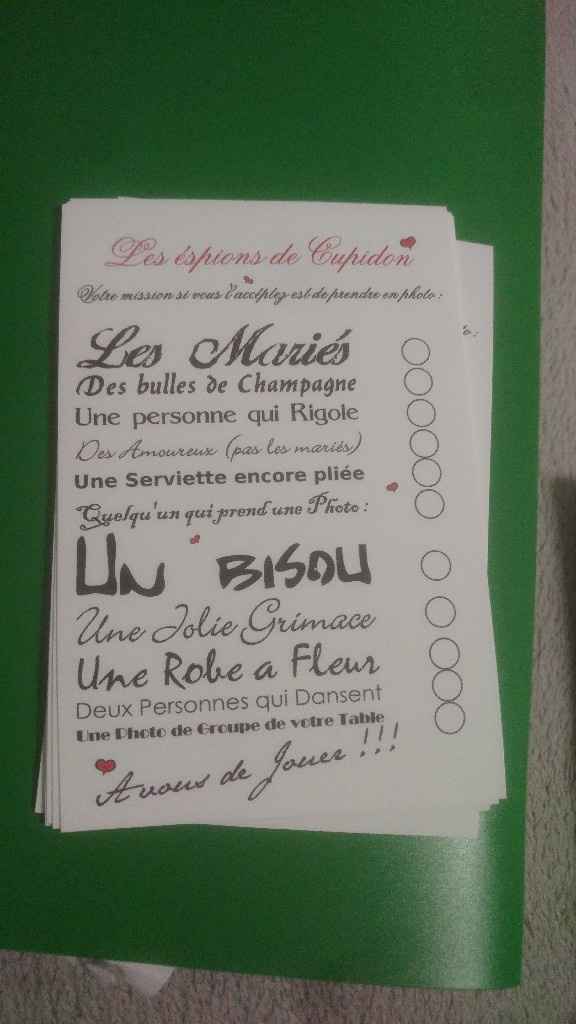 Les éspions de Cupidon
Votre mission si vous l'accéptez est de prendre en photo :
Les Mariés
Des bulles de Champagne
Une personne qui Rigole
Des Amoureux (pas les mariés)
Une Serviette encore pliée
Quelqu'un qui prend une Photo :
Un bisou
Une Jolie Grimace
Une Robe a Fleur
Deux Personnes qui Dansent
Une Photo de Groupe de votre Table
A vous de Jouer !!!